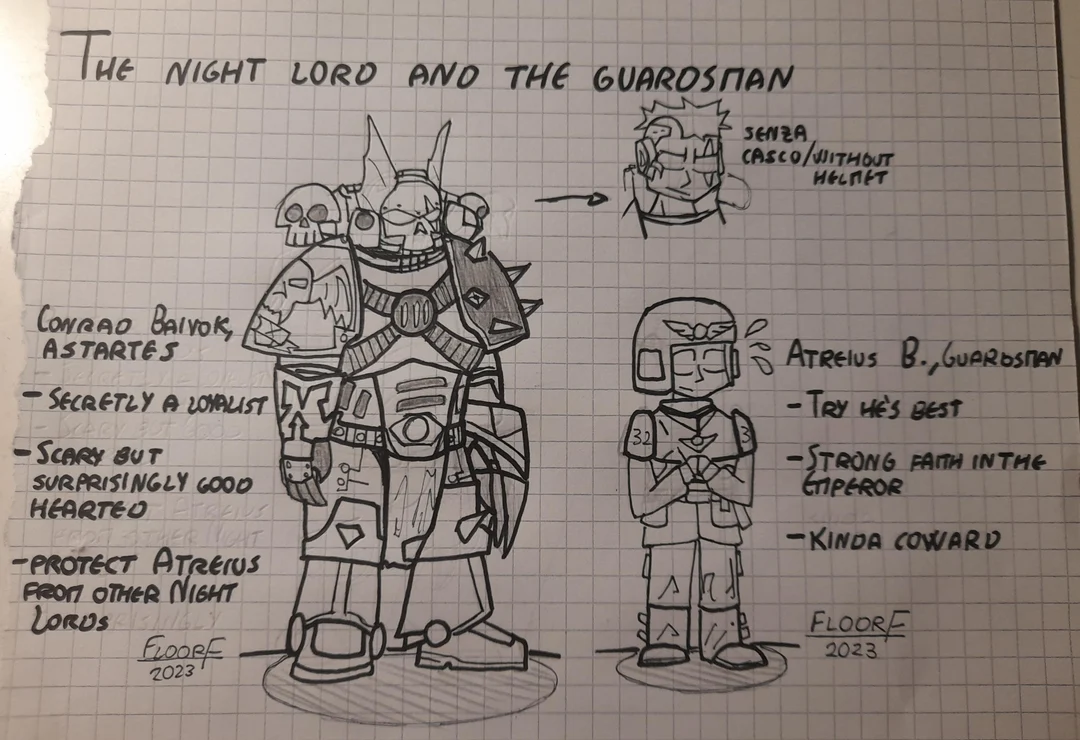 THE NIGHT LORD AND THE GUARDSMAN
SENZA
CASCO/WITHOUT
HELMET
CONRAD BAIVOK,
ASTARTES
- SECRETLY A LOYALIST
- SCARY BUT
SURPRISINGLY GOOD
HEARTED
- PROTECT ATREIUS
FROM OTHER NIGHT
LORDS
FLOORF
2023
ATREIUS B., GUARDSMAN
- TRY HE'S BEST
- STRONG FAITH IN THE
EMPEROR
- KINDA COWARD
32
3
FLOORF
2023